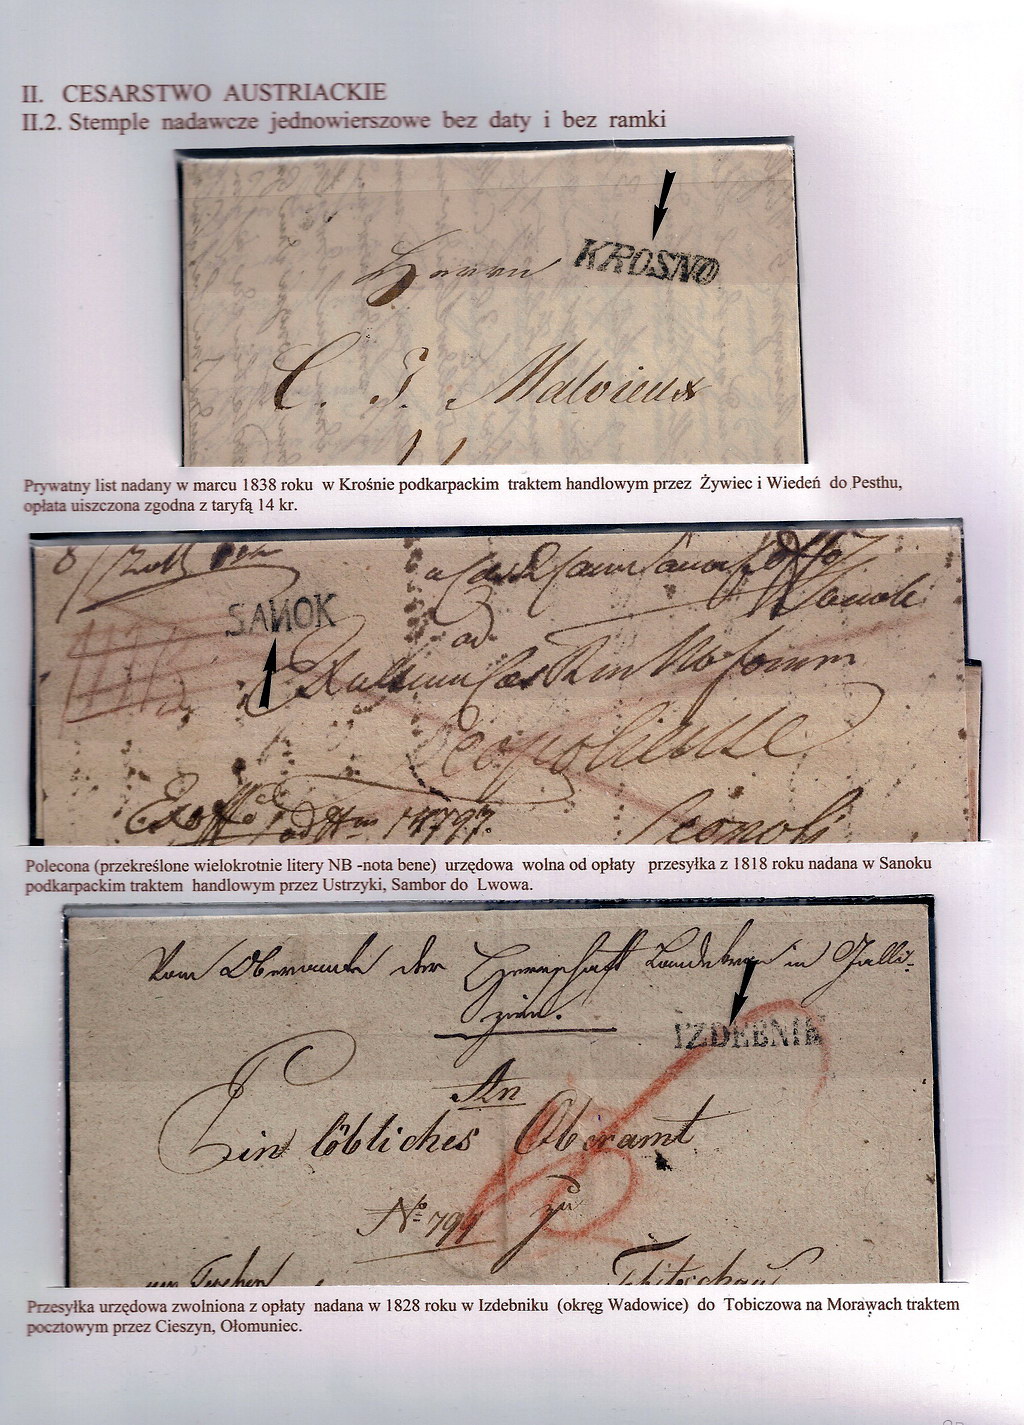 II. CESARSTWO AUSTRIACKIE
II.2. Stemple nadawcze jednowierszowe bez daty i bez ramki
KROSNO
Herrn
C. J. Malvieux
Prywatny list nadany w marcu 1838 roku w Krośnie podkarpackim traktem handlowym przez Żywiec i Wiedeń do Pesthu,
opłata uiszczona zgodna z taryfą 14 kr.
SANOK
ad
Leopoliense
Exoffo 14797.
Leopoli
Polecona (przekreślone wielokrotnie litery NB -nota bene) urzędowa wolna od opłaty przesyłka z 1818 roku nadana w Sanoku
podkarpackim traktem handlowym przez Ustrzyki, Sambor do Lwowa.
Vom Oberamte der Herrschaft Landskron in Galli-
zien.
IZDEBNIK
An
Ein löbliches Oberamt
No 799 zu
Przesyłka urzędowa zwolniona z opłaty nadana w 1828 roku w Izdebniku (okręg Wadowice) do Tobiczowa na Morawach traktem
pocztowym przez Cieszyn, Ołomuniec.